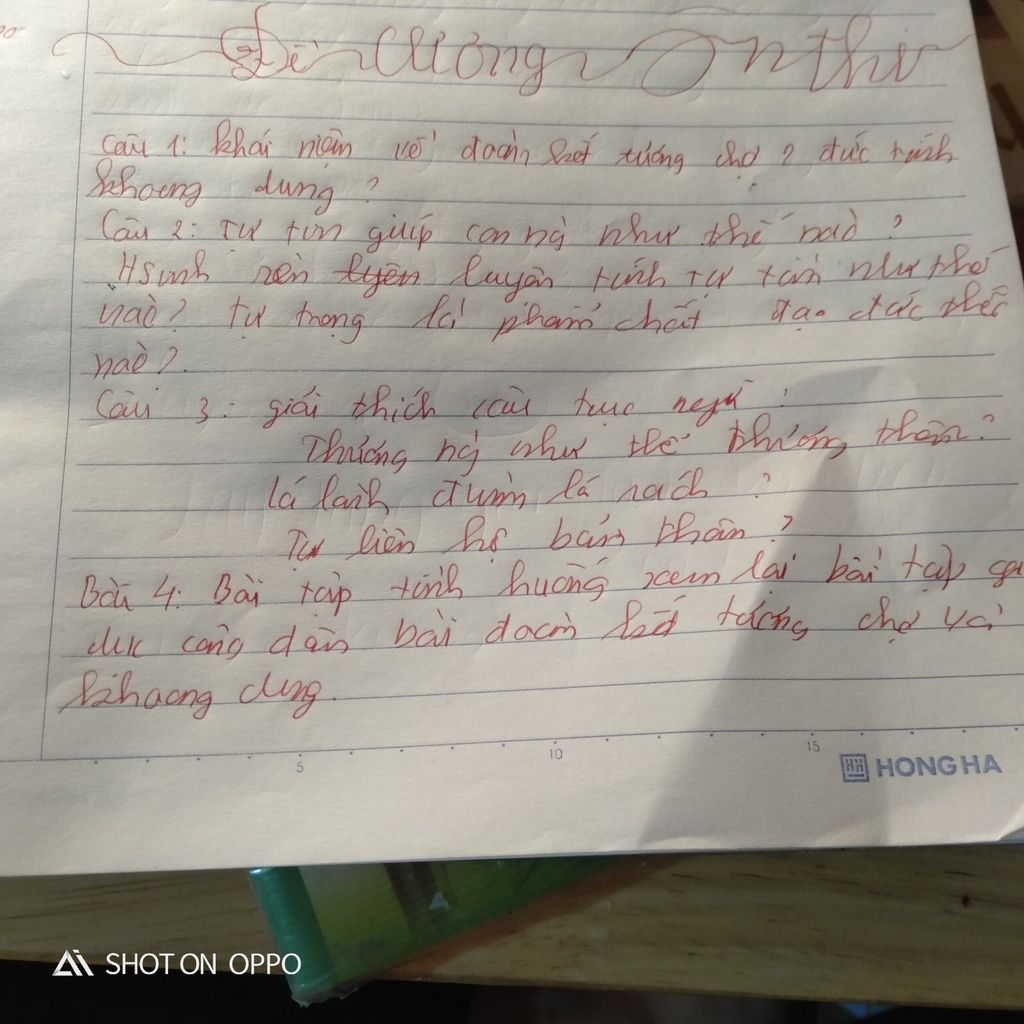 Đề Cương Ôn thi
Câu 1: khái niệm về đoàn kết tương trợ? đức tính
khoang dung?
Câu 2: Tự tin giúp con ng như thế nào?
Hsinh rèn luyện tính tự tin như thế
nào? tự trọng là phẩm chất đạo đức thế
nào?.
Câu 3: giải thích câu tục ngữ:
Thương ng như thể thương thân?
lá lành đùm lá rách?
Tự liên hệ bản thân?
Bài 4: Bài tập tình huống xem lại bài tập gi
dục công dân bài đoàn kết tương trợ và
khoang dung.
5 10 15
HONG HA
SHOT ON OPPO